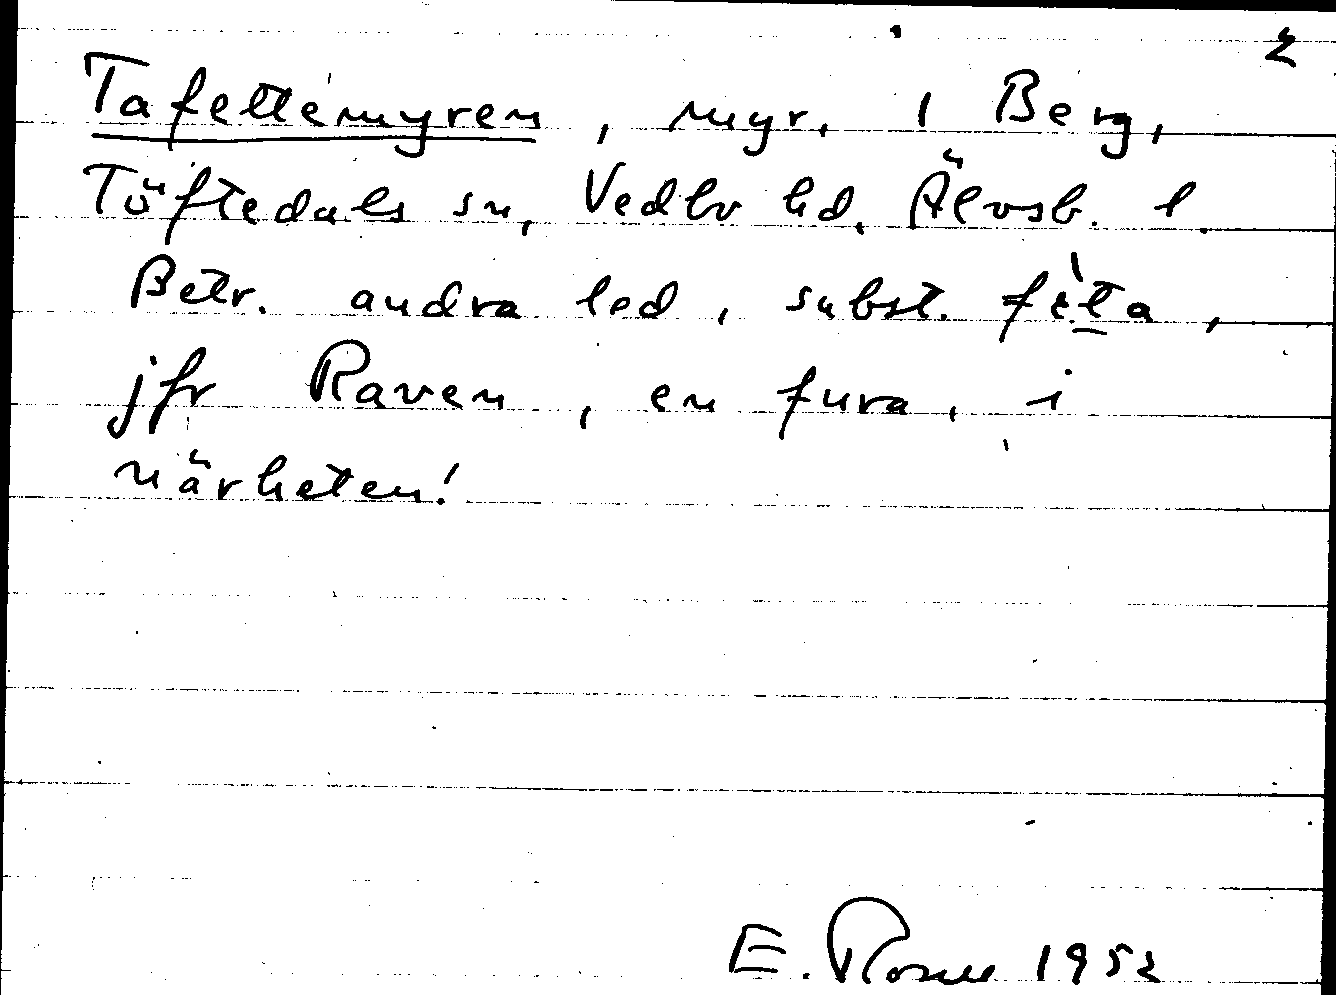 2
Tafettemyren, myr, i Berg,
Töftedals sn, Vedbo hd, Älvsb. l.
Betr. andra led, subst. feta,
jfr Raven, en fura, i
närheten!
E. 1952